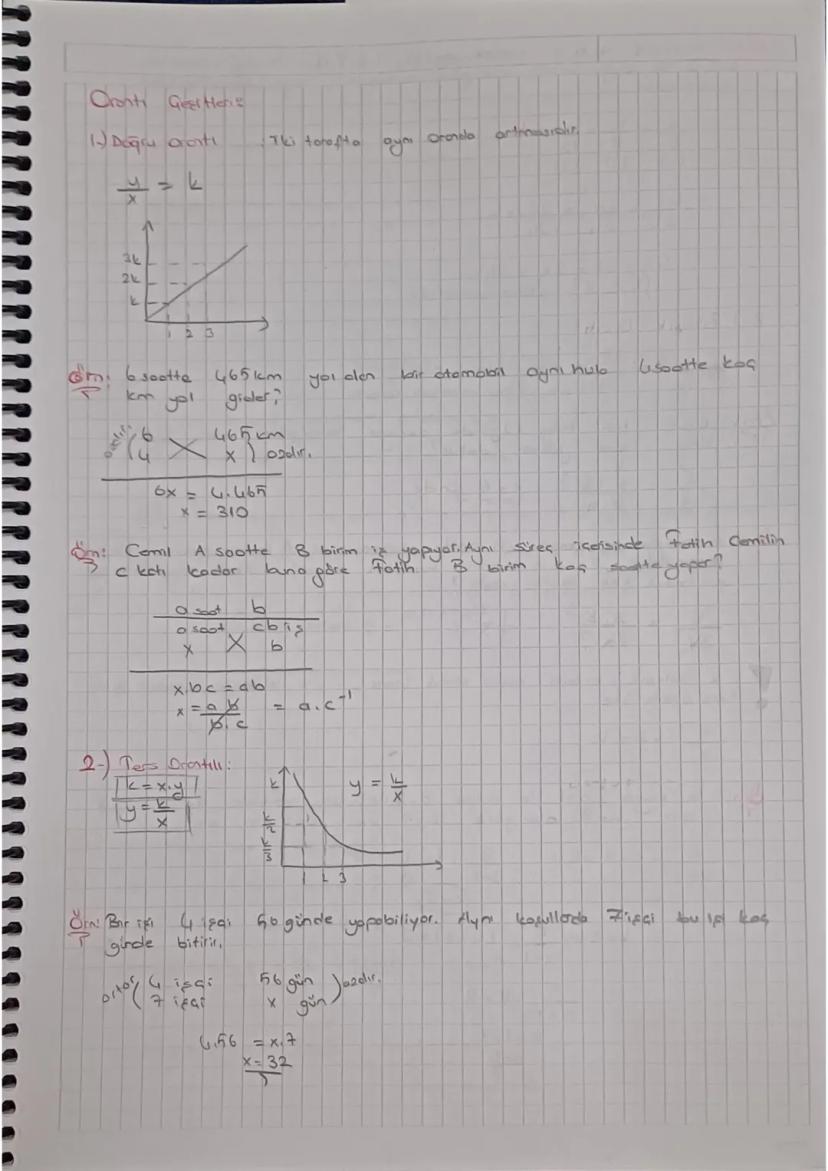 Orantı Çeşitleri:
1-) Doğru orantı : İki tarafta aynı oranda artmasıdır.
y/x = k
3k
2k
k
1 2 3
Örn: 6 saatte 465 km yol alan bir otomobil aynı hızla 4 saatte kaç
km yol gider?
6 465 km
4 x azdır.
6x = 4.465
x = 310
Örn: Cemil A saatte B birim iş yapıyor. Aynı süreç içerisinde Fatih Cemilin
c katı kadar buna göre Fatih B birim kaç saatte yapar?
a saat b
a saat cb iş
x b
x.bc = ab
x = a b / b. c = a.c⁻¹
2-) Ters Orantılı:
k = x.y
y = k/x
k
k/2
k/3
y = k/x
1 2 3
Örn: Bir işi 4 işçi 56 günde yapabiliyor. Aynı koşullarda 7 işçi bu işi kaç
günde bitirir.
artar 4 işçi 56 gün azdır.
7 işçi x gün
4.56 = x.7
x = 32